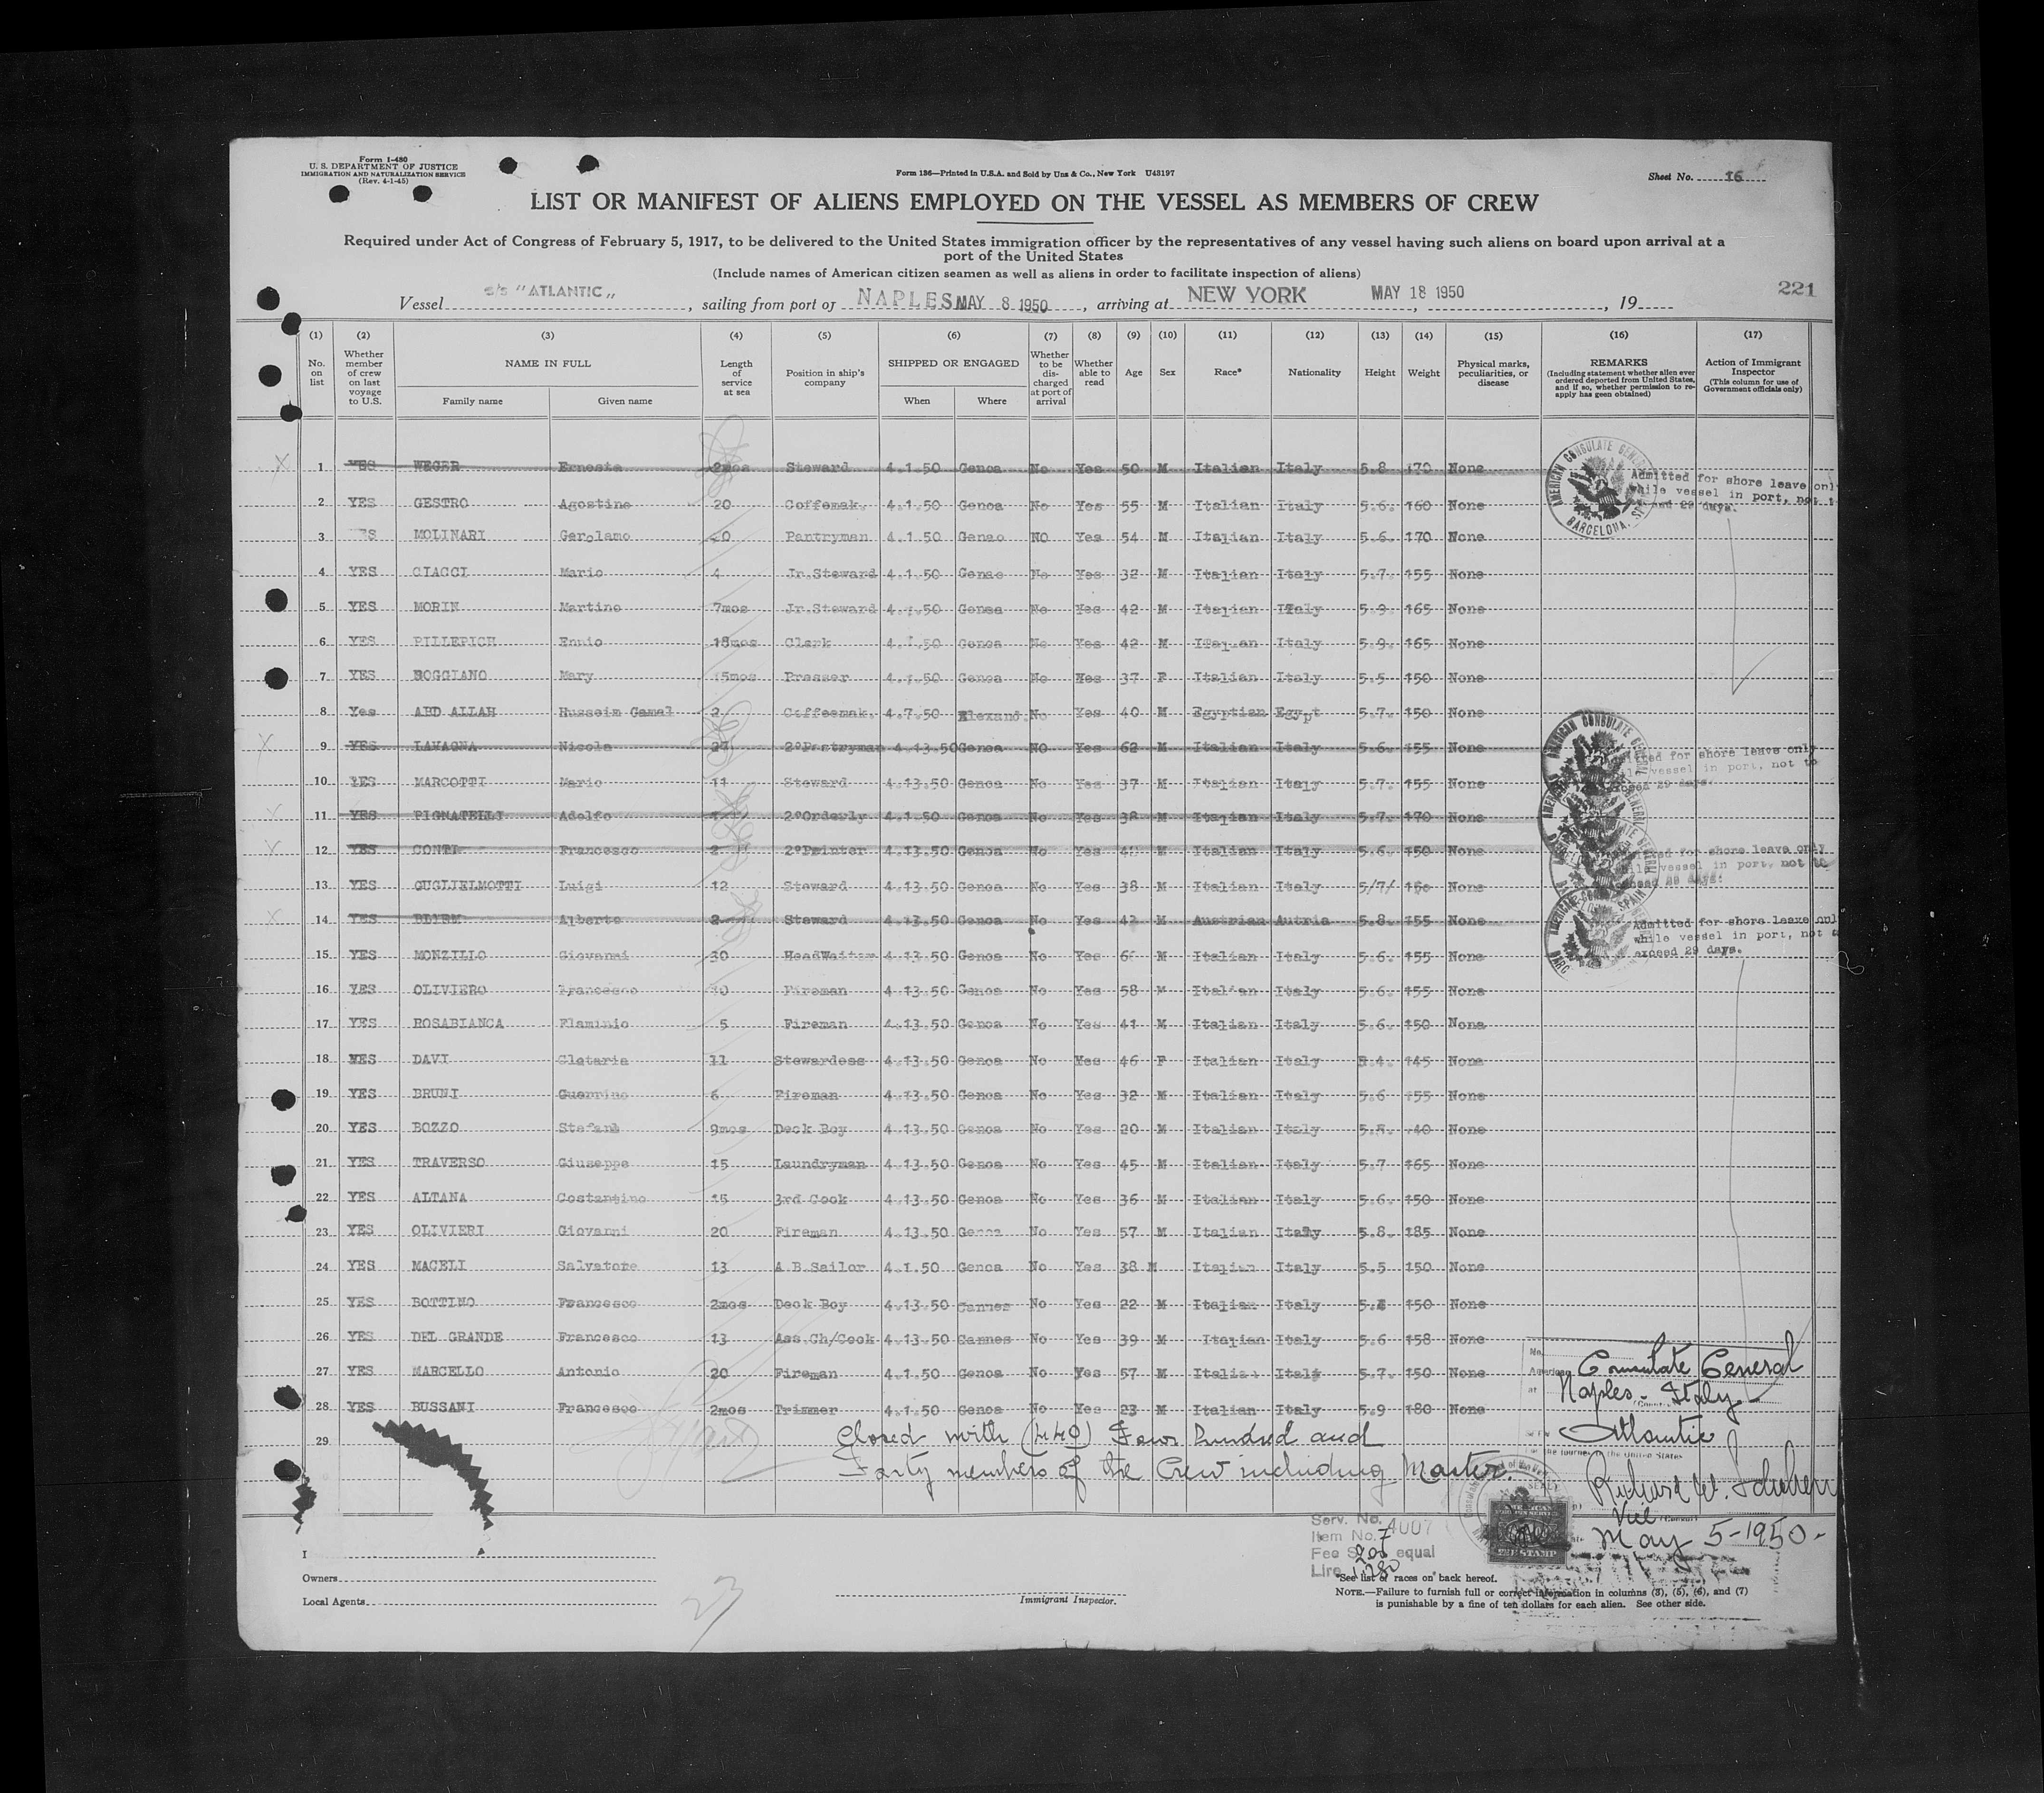 Form I-480
U. S. DEPARTMENT OF JUSTICE
IMMIGRATION AND NATURALIZATION SERVICE
(Rev. 4-1-45)
Form 136—Printed in U.S.A. and Sold by Unz & Co., New York U43197
Sheet No. 16
LIST OR MANIFEST OF ALIENS EMPLOYED ON THE VESSEL AS MEMBERS OF CREW
Required under Act of Congress of February 5, 1917, to be delivered to the United States immigration officer by the representatives of any vessel having such aliens on board upon arrival at a
port of the United States
(Include names of American citizen seamen as well as aliens in order to facilitate inspection of aliens)
221
Vessel s/s "ATLANTIC", sailing from port of NAPLES MAY 8 1950, arriving at NEW YORK MAY 18 1950, 19
(1) (2) (3) (4) (5) (6) (7) (8) (9) (10) (11) (12) (13) (14) (15) (16) (17)
No. on list
Whether member of crew on last voyage to U.S.
NAME IN FULL
Family name
Given name
Length of service at sea
Position in ship's company
SHIPPED OR ENGAGED
When
Where
Whether to be discharged at port of arrival
Whether able to read
Age
Sex
Race*
Nationality
Height
Weight
Physical marks, peculiarities, or disease
REMARKS
(Including statement whether alien ever ordered deported from United States, and if so, whether permission to re-apply has geen obtained)
Action of Immigrant Inspector
(This column for use of Government officials only)
1 YES WEGER Ernesto 2mos Steward 4.1.50 Genoa No Yes 50 M Italian Italy 5.8 170 None
2 YES GESTRO Agostino 20 Coffemak. 4.1.50 Genoa No Yes 55 M Italian Italy 5.6. 160 None
3 YES MOLINARI Gerolamo Pantryman 4.1.50 Genao NO Yes 54 M Italian Italy 5.6. 170 None
4 YES CIACCI Mario 4 Jr.Steward 4.1.50 Genao No Yes 32 M Italian Italy 5.7. 155 None
5 YES MORIN Martino 7mos Jr.Steward 4.1.50 Genoa No Yes 42 M Italian Italy 5.9. 165 None
6 YES PILLEPICH Ennio 18mos Clerk 4.1.50 Genoa No Yes 42 M Italian Italy 5.9. 165 None
7 YES BOGGIANO Mary 15mos Presser 4.1.50 Genoa No Yes 37 F Italian Italy 5.5 150 None
8 Yes ABD ALLAH Hussein Gamal 2 Coffeemak. 4.7.50 Alexand. No Yes 40 M Egyptian Egypt 5.7. 150 None
9 YES LAVAGNA Nicola 27 2°Pastryman 4.13.50 Genoa NO Yes 62 M Italian Italy 5.6. 155 None
10 YES MARCOTTI Mario 11 Steward 4.13.50 Genoa No Yes 37 M Italian Italy 5.7. 155 None
11 YES PIGNATELLI Adolfo 2°Orderly 4.1.50 Genoa No Yes 38 M Italian Italy 5.7. 170 None
12 YES CONTI Francesco 2 2°Printer 4.13.50 Genoa No Yes M Italian Italy 5.6. 150 None
13 YES GUGLIELMOTTI Luigi 12 Steward 4.13.50 Genoa No Yes 38 M Italian Italy 5/7/ 160 None
14 YES Alberto 2 Steward 4.13.50 Genoa No Yes 42 M Austrian Autria 5.8. 155 None
15 YES MONZILLO Giovanni 30 HeadWaiter 4.13.50 Genoa No Yes M Italian Italy 5.6. 155 None
16 YES OLIVIERO Francesco Fireman 4.13.50 Genoa No Yes 58 M Italian Italy 5.6. 155 None
17 YES ROSABIANCA Flaminio 5 Fireman 4.13.50 Genoa No Yes 41 M Italian Italy 5.6. 150 None
18 YES DAVI Clataria 11 Stewardess 4.13.50 Genoa No Yes 46 F Italian Italy 5.4. 145 None
19 YES BRUNI Guerrino 6 Fireman 4.13.50 Genoa No Yes 32 M Italian Italy 5.6 155 None
20 YES BOZZO Stefano 9mos Deck Boy 4.13.50 Genoa No Yes 20 M Italian Italy 140 None
21 YES TRAVERSO Giuseppe 15 Laundryman 4.13.50 Genoa No Yes 45 M Italian Italy 5.7 165 None
22 YES ALTANA Costantino 15 3rd Cook 4.13.50 Genoa No Yes 36 M Italian Italy 5.6. 150 None
23 YES OLIVIERI Giovanni 20 Fireman 4.13.50 Genoa No Yes 57 M Italian Italy 5.8. 185 None
24 YES MACELI Salvatore 13 A.B.Sailor 4.1.50 Genoa No Yes 38 M Italian Italy 5.5 150 None
25 YES BOTTINO Francesco 2mos Deck Boy 4.13.50 Cannes No Yes 22 M Italian Italy 150 None
26 YES DEL GRANDE Francesco 13 Ass.Ch/Cook 4.13.50 Cannes No Yes 39 M Italian Italy 5.6 158 None
27 YES MARCELLO Antonio 20 Fireman 4.1.50 Genoa No Yes 57 M Italian Italy 5.7. 150 None
28 YES BUSSANI Francesco 2mos Trimmer 4.1.50 Genoa No Yes 23 M Italian Italy 5.9 180 None
29
AMERICAN CONSULATE GENERAL
BARCELONA, SPAIN
Admitted for shore leave only
while vessel in port, not to
exceed 29 days.
Admitted for shore leave only
while vessel in port, not to
exceed 29 days.
Admitted for shore leave only
while vessel in port, not to
exceed 29 days.
Admitted for shore leave only
while vessel in port, not to
exceed 29 days.
Closed with (440) Four hundred and
Forty members of the Crew including Master.
No.
American Consulate General
at Naples - Italy
Atlantic
For the journey to the United States
Vice Consul
May 5-1950.
Serv. No. 4007
Item No. 7
Fee $ equal
Lire
I
Owners
Local Agents
23
Immigrant Inspector.
*See list of races on back hereof.
NOTE.—Failure to furnish full or correct information in columns (3), (5), (6), and (7)
is punishable by a fine of ten dollars for each alien. See other side.